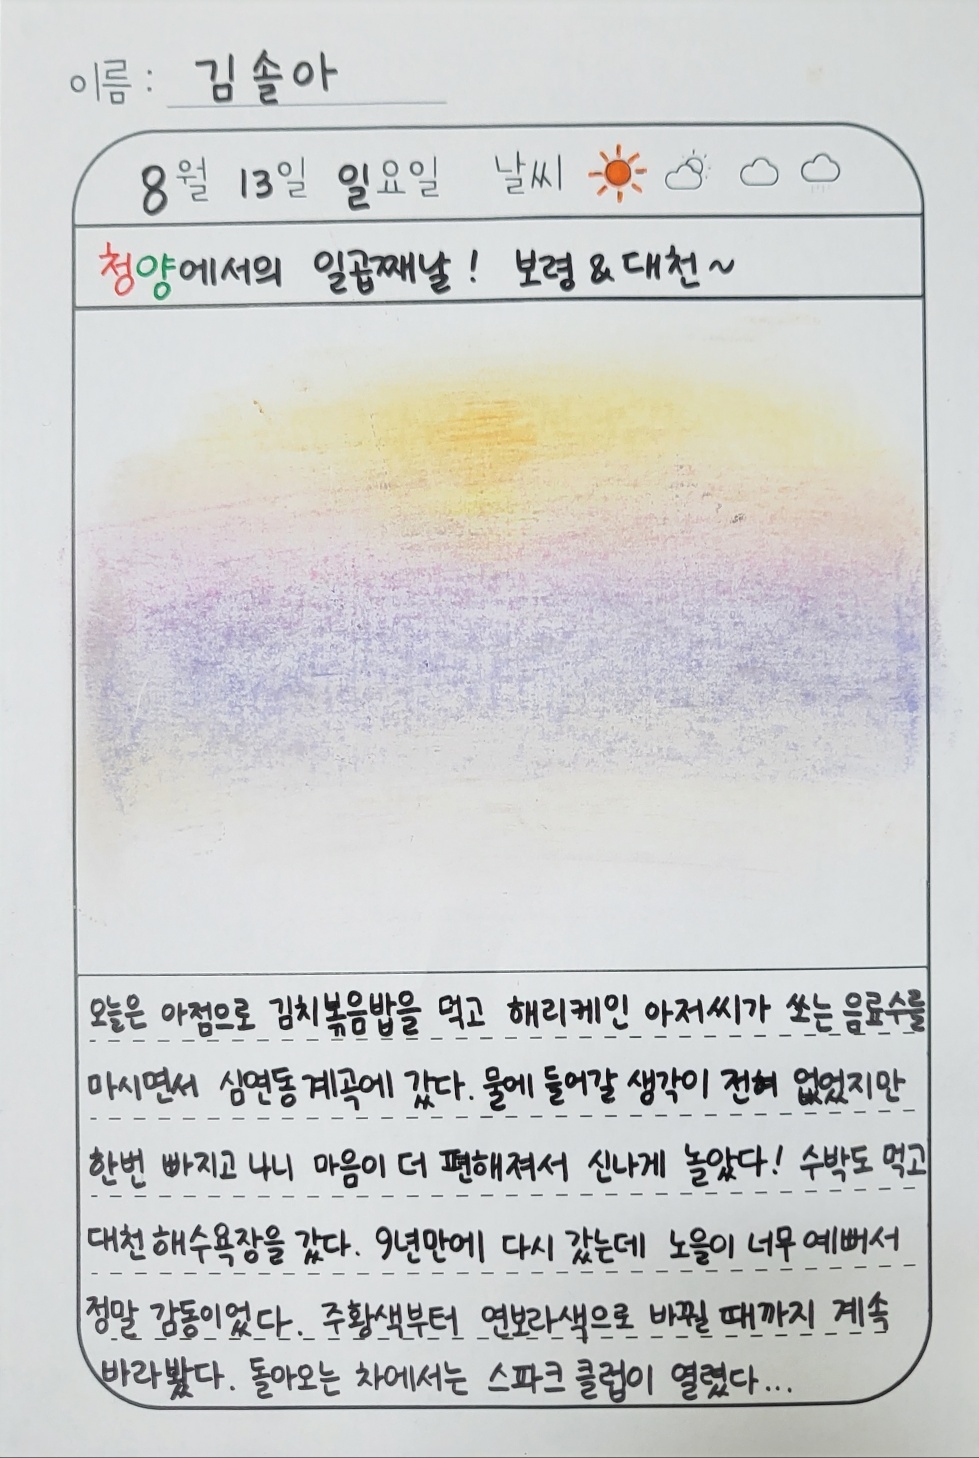 이름 : 김솔아
8월 13일 일요일 날씨
청양에서의 일곱째날! 보령 & 대천~
오늘은 아점으로 김치볶음밥을 먹고 해리케인 아저씨가 쏘는 음료수를
마시면서 심연동 계곡에 갔다. 물에 들어갈 생각이 전혀 없었지만
한번 빠지고 나니 마음이 더 편해져서 신나게 놀았다! 수박도 먹고
대천 해수욕장을 갔다. 9년만에 다시 갔는데 노을이 너무 예뻐서
정말 감동이었다. 주황색부터 연보라색으로 바뀔 때까지 계속
바라봤다. 돌아오는 차에서는 스파크 클럽이 열렸다...